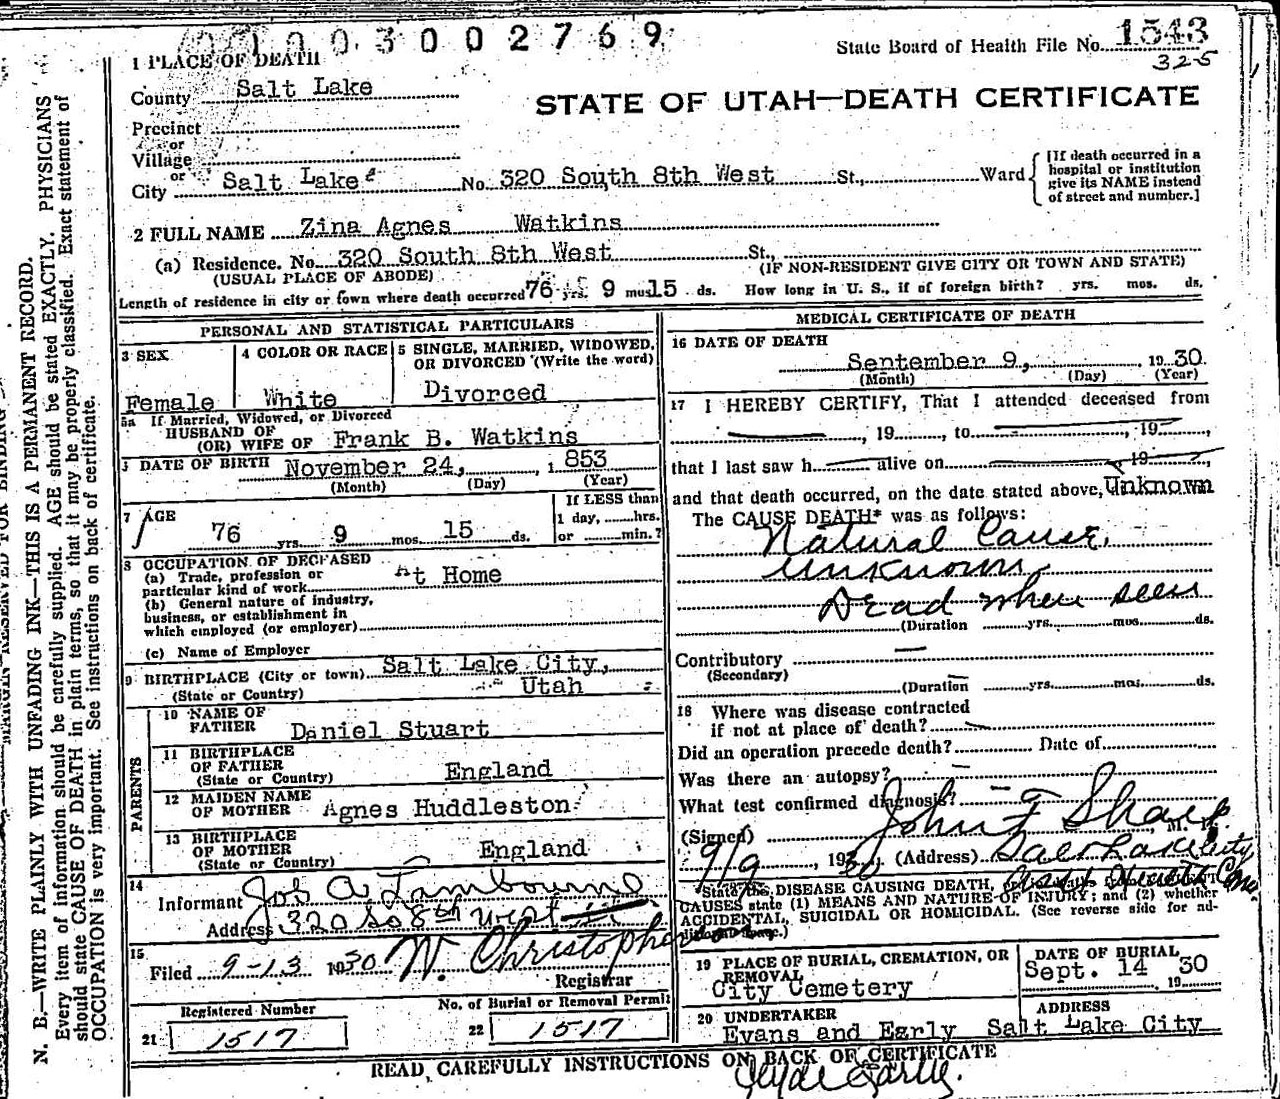 003002769
State Board of Health File No. 1543
325
1 PLACE OF DEATH
County Salt Lake
STATE OF UTAH—DEATH CERTIFICATE
Precinct
or
Village
or
City Salt Lake No. 320 South 8th West St., Ward
[If death occurred in a hospital or institution give its NAME instead of street and number.]
2 FULL NAME Zina Agnes Watkins
(a) Residence. No. 320 South 8th West St.,
(USUAL PLACE OF ABODE) (IF NON-RESIDENT GIVE CITY OR TOWN AND STATE)
Length of residence in city or town where death occurred 76 yrs. 9 mos. 15 ds. How long in U. S., if of foreign birth? yrs. mos. ds.
PERSONAL AND STATISTICAL PARTICULARS
3 SEX
Female
4 COLOR OR RACE
White
5 SINGLE, MARRIED, WIDOWED, OR DIVORCED (Write the word)
Divorced
5a If Married, Widowed, or Divorced
HUSBAND OF
(OR) WIFE OF Frank B. Watkins
DATE OF BIRTH November 24, 1853
(Month) (Day) (Year)
7 AGE
76 yrs. 9 mos. 15 ds.
If LESS than
1 day, hrs.
or min.?
8 OCCUPATION OF DECEASED
(a) Trade, profession or
particular kind of work At Home
(b) General nature of industry,
business, or establishment in
which employed (or employer)
(c) Name of Employer
9 BIRTHPLACE (City or town) Salt Lake City,
(State or Country) Utah
PARENTS
10 NAME OF FATHER Daniel Stuart
11 BIRTHPLACE OF FATHER
(State or Country) England
12 MAIDEN NAME OF MOTHER Agnes Huddleston
13 BIRTHPLACE OF MOTHER
(State or Country) England
14
Informant Job A Lambourne
Address 320 So 8th West St
15
Filed 9-13 1930 W. Christopherson
Registrar
Registered Number
21 1517
No. of Burial or Removal Permit
22 1517
MEDICAL CERTIFICATE OF DEATH
16 DATE OF DEATH
September 9, 1930
(Month) (Day) (Year)
17 I HEREBY CERTIFY, That I attended deceased from
, 19 , to , 19 ,
that I last saw h alive on , 19 ,
and that death occurred, on the date stated above, Unknown
The CAUSE DEATH* was as follows:
Natural Cause,
unknown
Dead when seen
(Duration yrs. mos. ds.
Contributory
(Secondary)
(Duration yrs. mos. ds.
18 Where was disease contracted
if not at place of death?
Did an operation precede death? Date of
Was there an autopsy?
What test confirmed diagnosis?
(Signed) John F Sharp, M. D.
9/9, 1930 (Address) Salt Lake City
State the DISEASE CAUSING DEATH,
CAUSES state (1) MEANS AND NATURE OF INJURY; and (2) whether
ACCIDENTAL, SUICIDAL OR HOMICIDAL. (See reverse side for additional space.)
19 PLACE OF BURIAL, CREMATION, OR REMOVAL
City Cemetery
DATE OF BURIAL
Sept. 14 1930
20 UNDERTAKER
Evans and Early
ADDRESS
Salt Lake City
READ CAREFULLY INSTRUCTIONS ON BACK OF CERTIFICATE
Clyde Early.
N. B.—WRITE PLAINLY WITH UNFADING INK—THIS IS A PERMANENT RECORD.
Every item of information should be carefully supplied. AGE should be stated EXACTLY. PHYSICIANS
should state CAUSE OF DEATH in plain terms, so that it may be properly classified. Exact statement of
OCCUPATION is very important. See instructions on back of certificate.
MARGIN RESERVED FOR BINDING